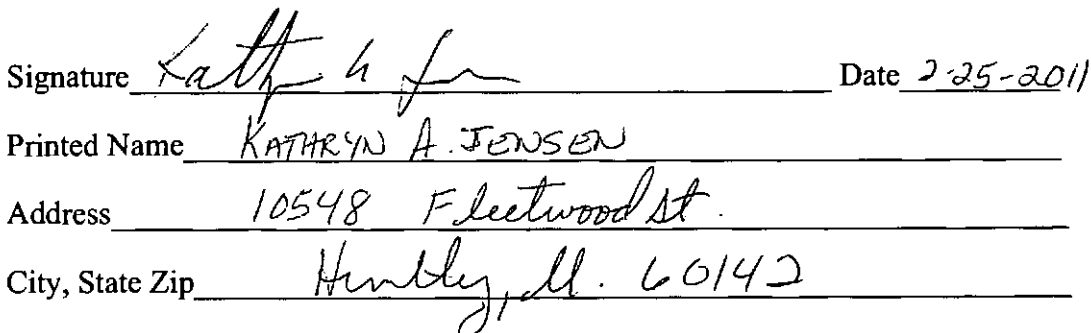 Signature Kathryn A Jensen Date 2-25-2011
Printed Name KATHRYN A. JENSEN
Address 10548 Fleetwood St.
City, State Zip Huntley, Il. 60142